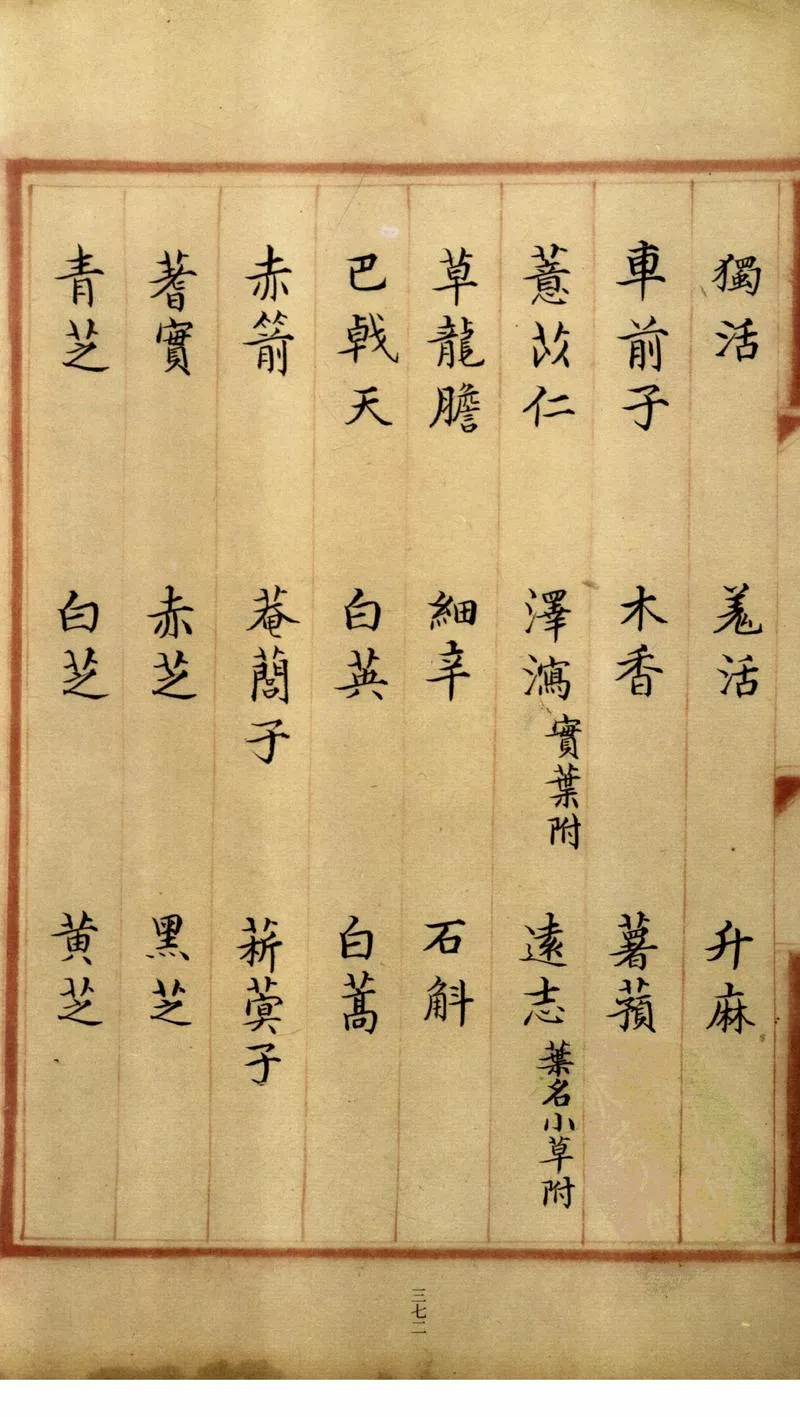 獨活 羗活 升麻
車前子 木香 薯蕷
薏苡仁 澤瀉實葉附 遠志葉名小草附
草龍膽 細辛 石斛
巴戟天 白英 白蒿
赤箭 菴䕡子 菥蓂子
蓍實 赤芝 黑芝
青芝 白芝 黄芝
三七二